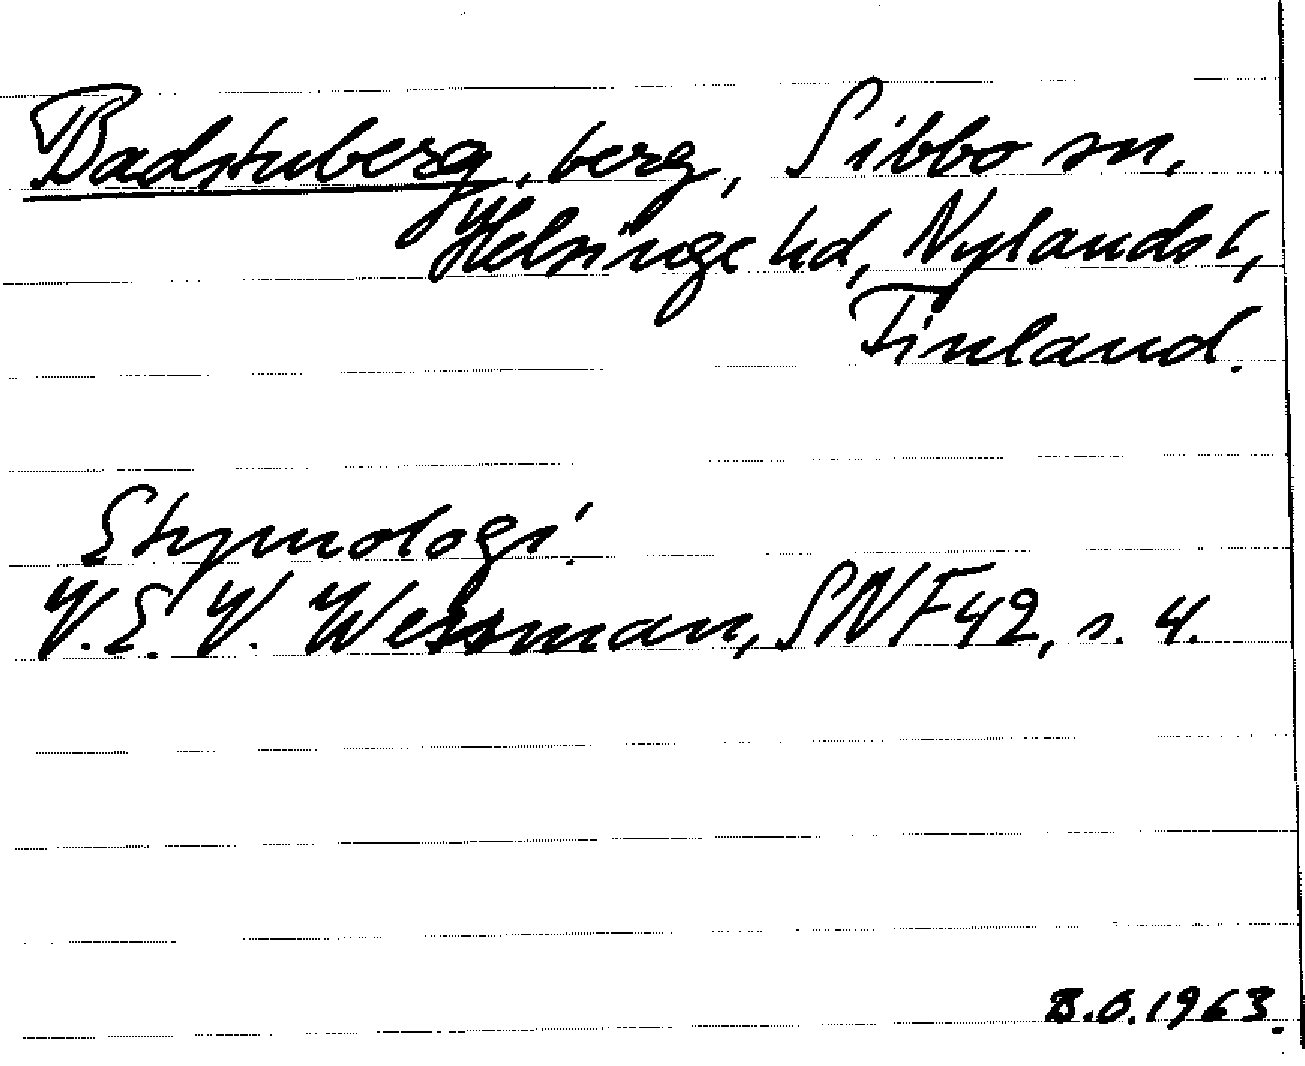 Badstuberg, berg, Sibbo sn,
Helsinge hd, Nylands l,
Finland.
Etymologi:
V. E. V. Wessman, SNF 42, s. 4.
B.O. 1963.